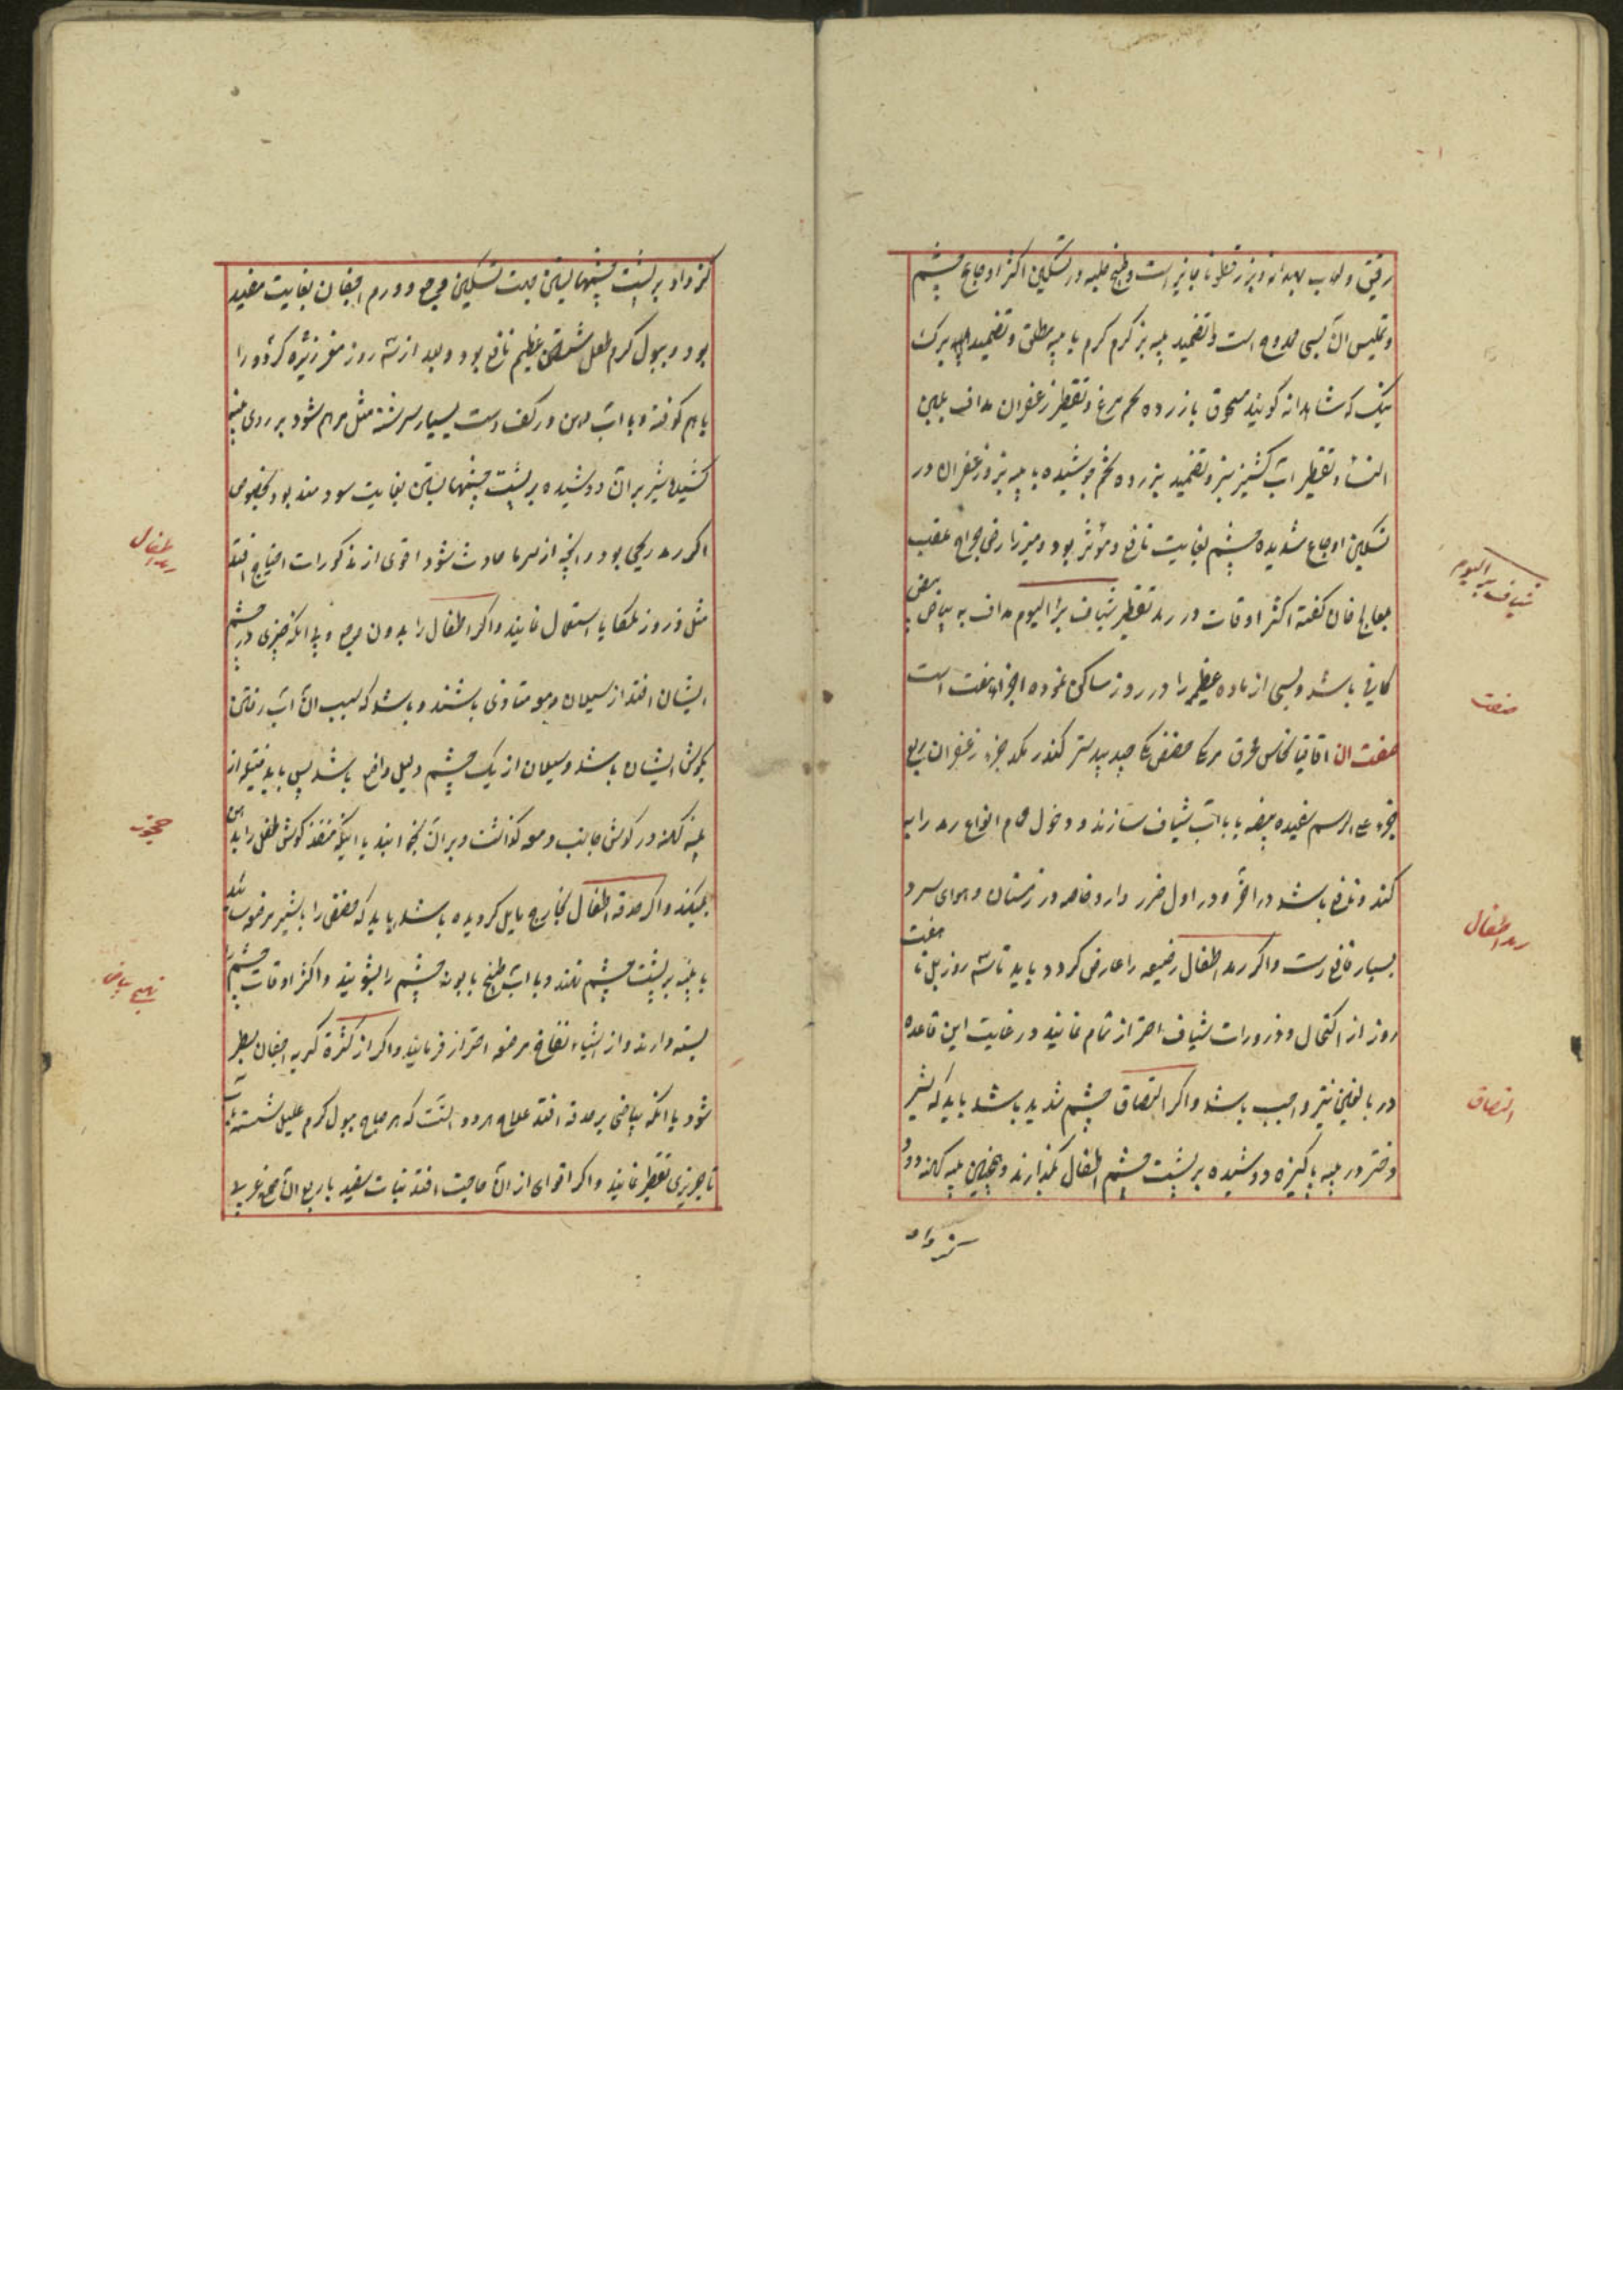 رقیق و لعاب بهدانه و بزرقطونا جایز است و طبخ حلبه در تسکین اکثر اوجاع چشم
و تملیس آن بسی ممدوح است و تضمید پیه بز گرم گرم یا پیه مطلق و تضمید برک
بنک که شاهدانه گویند مسحوق با زرده تخم مرغ و تقطیر زعفران مداف بلبن
النسا و تقطیر آب کشنیز سبز و تضمید بزرده تخم جوشیده با پیه بز و زعفران در
تسکین اوجاع شدیده چشم بغایت نافع و مؤثر بود و میرزا رضی جراح عقب
معالج خان گفته اکثر اوقات در رمد تقطیر شیاف برء الیوم مداف به بیاض بیض
کافی باشد و بسی از ماده عظیم را در روز ساکن نموده اجزاء هفت است
صفت آن اقاقیا نحاس محرق مر مکی حضض مکی جندبیدستر کندر هر یک جزء زعفران ربع
جزء علی الرسم سفیده بیضه یا با آب شیاف سازند و دخول حمام انواع رمد را به
کند و نافع باشد در آخر و در اول ضرر دارد خاصه در زمستان و هوای سرد
بسیار قانع رست و اگر رمد اطفال رضیعه را عارض گردد باید تا سه روز بل تا هفت
روز از اکتحال و ذرورات شیاف احتراز تمام نمایند و رعایت این قاعده
در بالغین نیز واجب باشد و اگر التصاق چشم شدید باشد باید که شیر
دختر در پنبه پاکیزه دوشیده بر پشت چشم اطفال بگذارند و همچنین پنبه کهنه دود
کرداد
شیاف برء الیوم
صفت
رمد اطفال
التصاق
کرداد بر پشت چشمها بستن جهت تسکین وجع و ورم اجفان بغایت مفید
بود و ببول گرم طفل شستن عظیم نافع بود و بعد از سه روز مغز زیره کرد و را
با هم کوفته و با آب دهن در کف دست بسیار سرشته مثل مرهم شود بر روی پنبه
کشیده شیر بر آن دوشیده بر پشت چشمها بستن بغایت سودمند بود بخصوص
اگر رمد ریحی بود و آنچه از سرما حادث شود اقوی از مذکورات احتیاج افتد
مثل ذرور ملکایا استعمال نمایند و اگر اطفال را بدون وجع و بدانکه چیزی در چشم
ایشان افتد از سیلان دمع متأذی باشند و باشد که سبب آن آب رفتن
بگوش ایشان باشد و سیلان از یک چشم دلیل واضح باشد پس باید فتیله از
پنبه کهنه در گوش جانب دمعه گذاشت و بر آن بخوابند یا اینکه منفذ گوش طفل را بدهن
بمکند و اگر حدقه اطفال بخارج مایل گردیده باشد باید که حضض را بشیر مرضعه سائیده
با پنبه بر پشت چشم نهند و با آب طبخ بابونه چشم را بشویند و اکثر اوقات چشم را
بسته دارند و از اشیاء نفاخ مرضعه احتراز فرمایند و اگر از کثرة گریه اجفان سطبر
شود یا آنکه بیاضی بر حدقه افتد علاج هر دو آنست که هر صباح ببول گرم علیل شسته آب
تاجریزی تقطیر نمایند و اگر اقوای از آن حاجت افتد نبات سفید با ربع آن صمغ عربی
رمد اطفال
جحوظ
تهبج بیاض